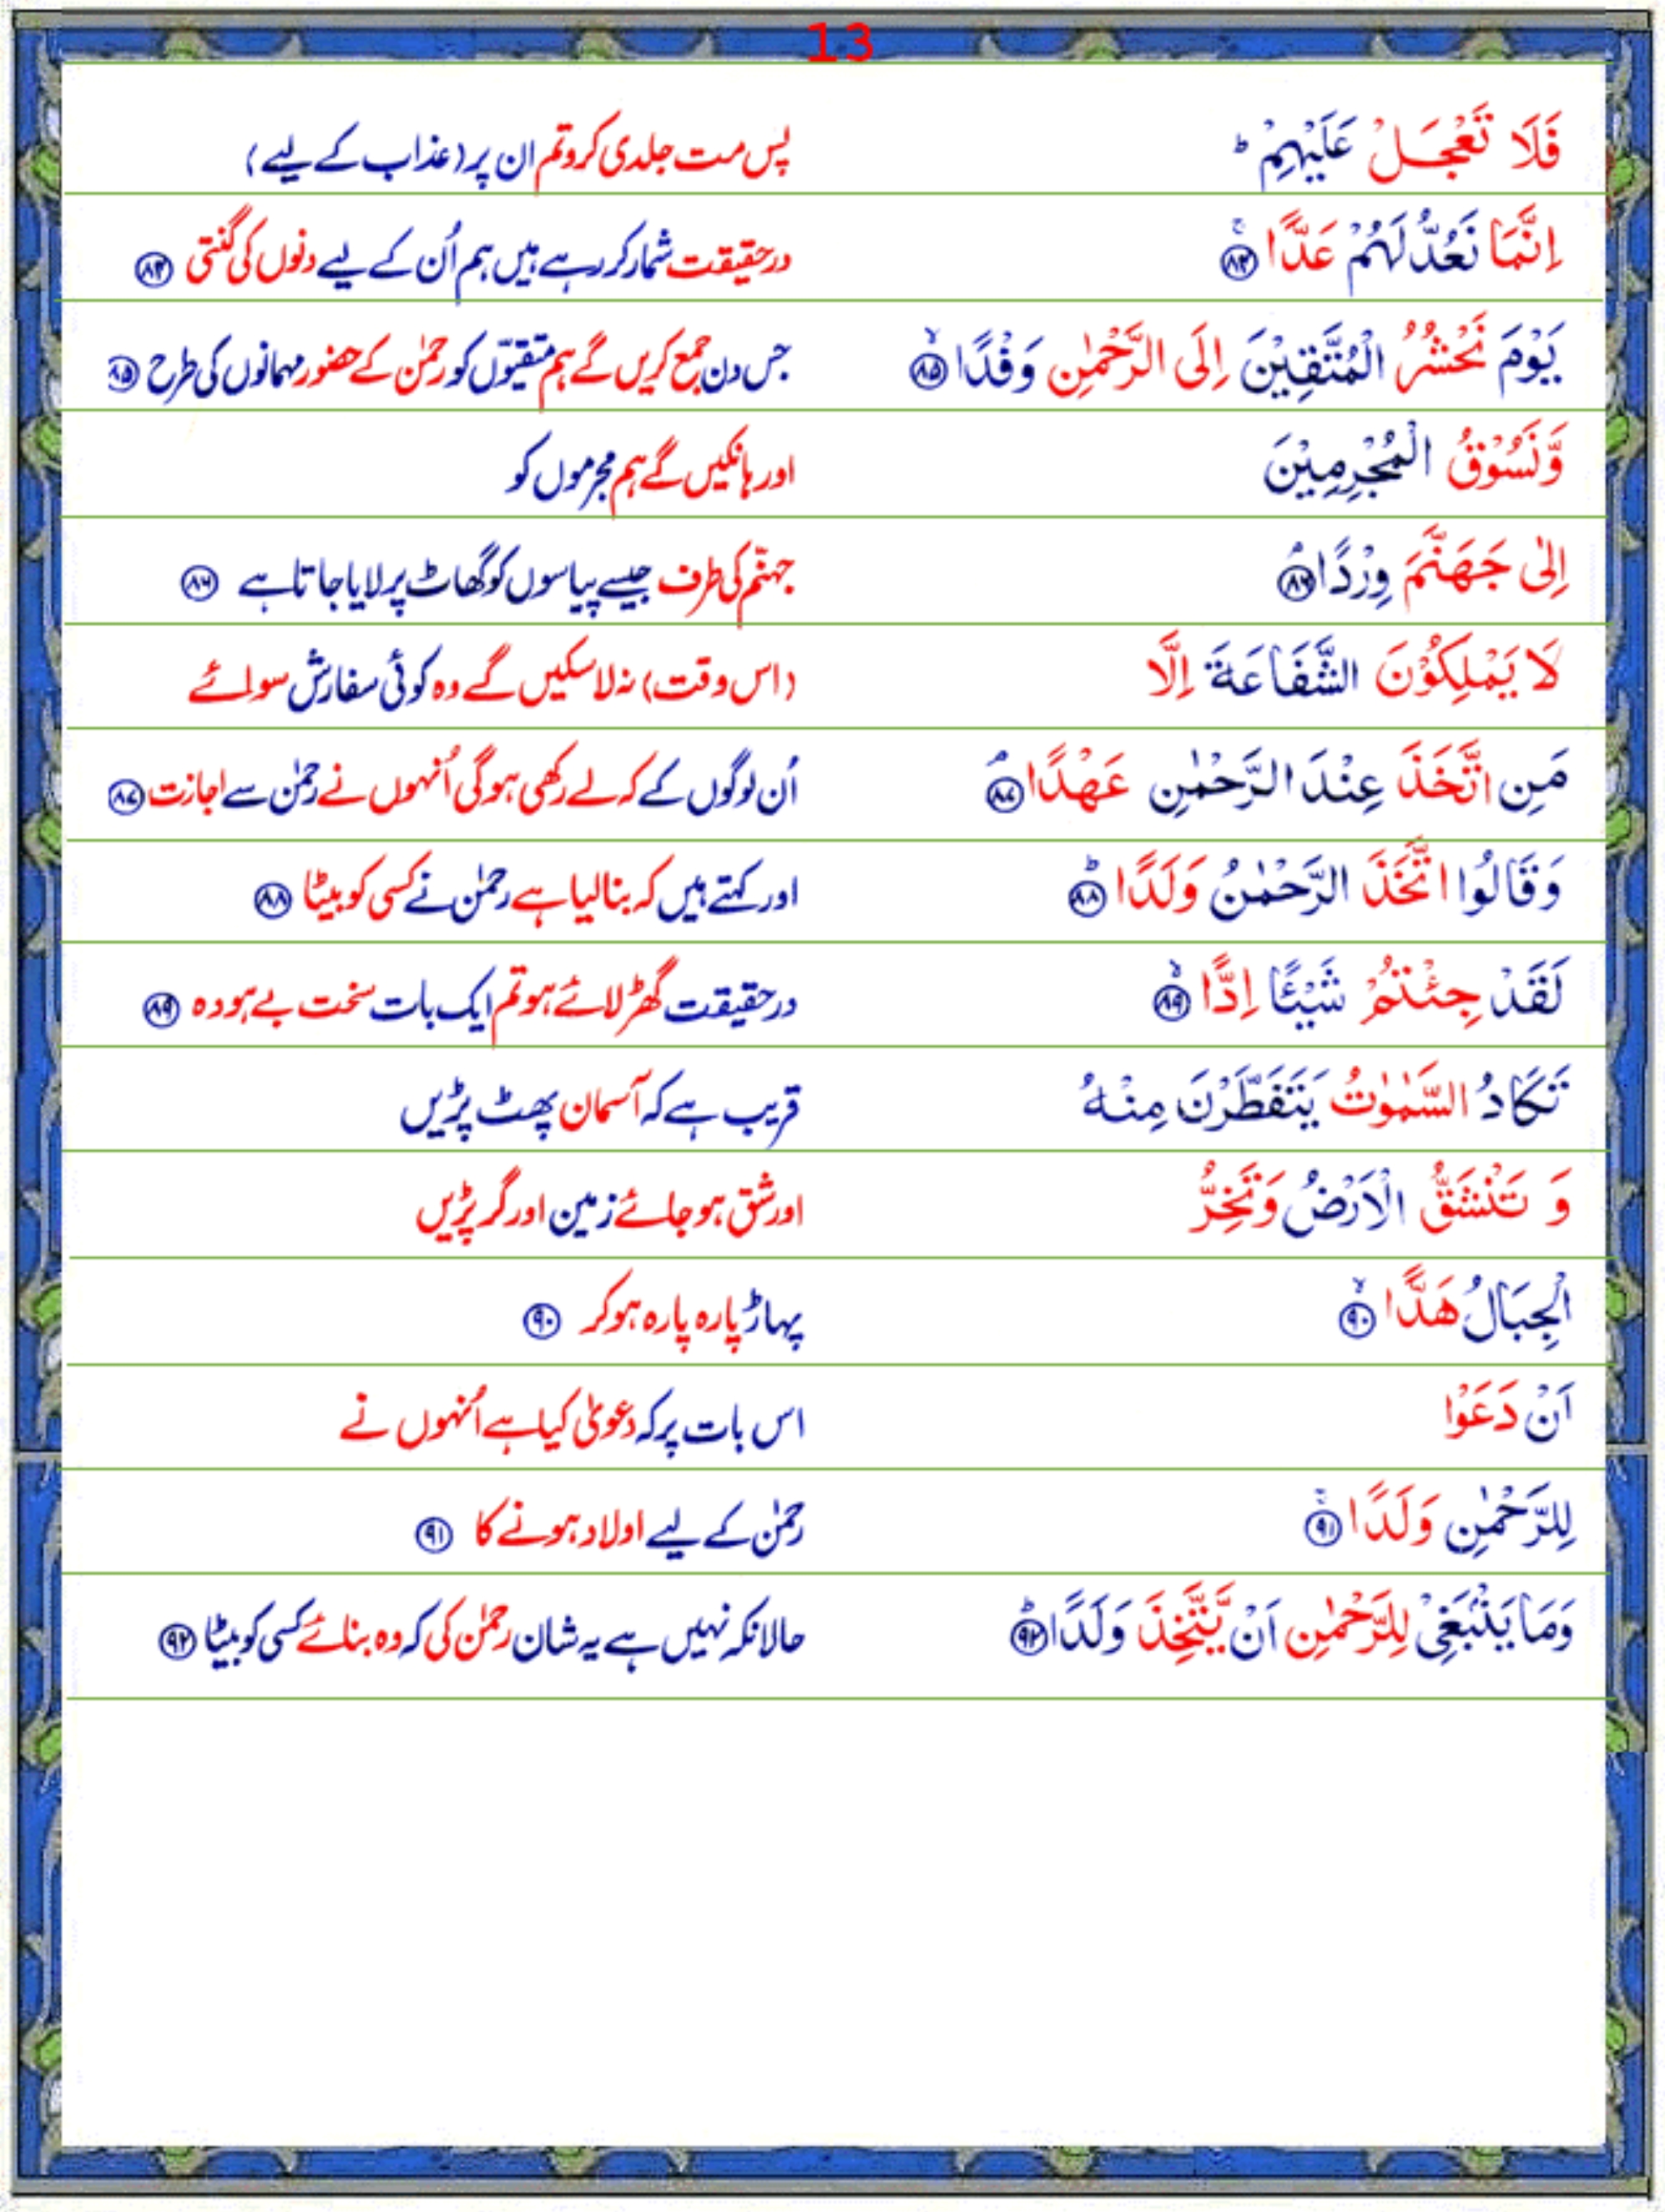 13
فَلَا تَعْجَلْ عَلَيْهِمْ ؕ پس مت جلدی کرو تم ان پر (عذاب کے لیے)
اِنَّمَا نَعُدُّ لَهُمْ عَدًّا ۚ ﴿۸۴﴾ درحقیقت شمار کر رہے ہیں ہم اُن کے لیے دنوں کی گنتی ﴿۸۴﴾
يَوْمَ نَحْشُرُ الْمُتَّقِيْنَ اِلَى الرَّحْمٰنِ وَفْدًا ۙ ﴿۸۵﴾ جس دن جمع کریں گے ہم متقیوں کو رحمٰن کے حضور مہمانوں کی طرح ﴿۸۵﴾
وَّنَسُوْقُ الْمُجْرِمِيْنَ اور ہانکیں گے ہم مجرموں کو
اِلٰى جَهَنَّمَ وِرْدًا ۘ ﴿۸۶﴾ جہنّم کی طرف جیسے پیاسوں کو گھاٹ پر لایا جاتا ہے ﴿۸۶﴾
لَا يَمْلِكُوْنَ الشَّفَاعَةَ اِلَّا (اس وقت) نہ لا سکیں گے وہ کوئی سفارش سوائے
مَنِ اتَّخَذَ عِنْدَ الرَّحْمٰنِ عَهْدًا ۘ ﴿۸۷﴾ اُن لوگوں کے کہ لے رکھی ہوگی اُنہوں نے رحمٰن سے اجازت ﴿۸۷﴾
وَقَالُوا اتَّخَذَ الرَّحْمٰنُ وَلَدًا ؕ ﴿۸۸﴾ اور کہتے ہیں کہ بنا لیا ہے رحمٰن نے کسی کو بیٹا ﴿۸۸﴾
لَقَدْ جِئْتُمْ شَيْئًا اِدًّا ۙ ﴿۸۹﴾ درحقیقت گھڑ لائے ہو تم ایک بات سخت بے ہودہ ﴿۸۹﴾
تَكَادُ السَّمٰوٰتُ يَتَفَطَّرْنَ مِنْهُ قریب ہے کہ آسمان پھٹ پڑیں
وَ تَنْشَقُّ الْاَرْضُ وَتَخِرُّ اور شق ہو جائے زمین اور گر پڑیں
الْجِبَالُ هَدًّا ۙ ﴿۹۰﴾ پہاڑ پارہ پارہ ہو کر ﴿۹۰﴾
اَنْ دَعَوْا اس بات پر کہ دعویٰ کیا ہے اُنہوں نے
لِلرَّحْمٰنِ وَلَدًا ۚ ﴿۹۱﴾ رحمٰن کے لیے اولاد ہونے کا ﴿۹۱﴾
وَمَا يَنْۢبَغِىْ لِلرَّحْمٰنِ اَنْ يَّتَّخِذَ وَلَدًا ؕ ﴿۹۲﴾ حالانکہ نہیں ہے یہ شان رحمٰن کی کہ وہ بنائے کسی کو بیٹا ﴿۹۲﴾